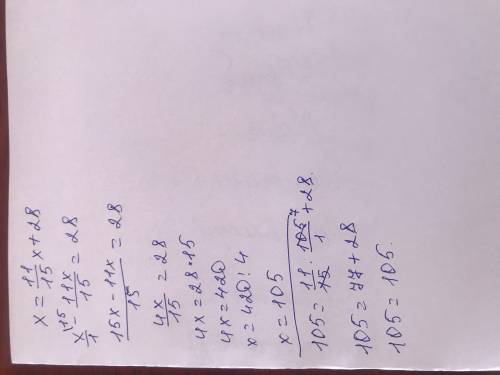 x = 11/15 x + 28
x^15/1 - 11x/15 = 28
15x - 11x/15 = 28
4x/15 = 28
4x = 28 · 15
4x = 420
x = 420 : 4
x = 105
105 = 11/15 · 105^7/1 + 28.
105 = 77 + 28
105 = 105.